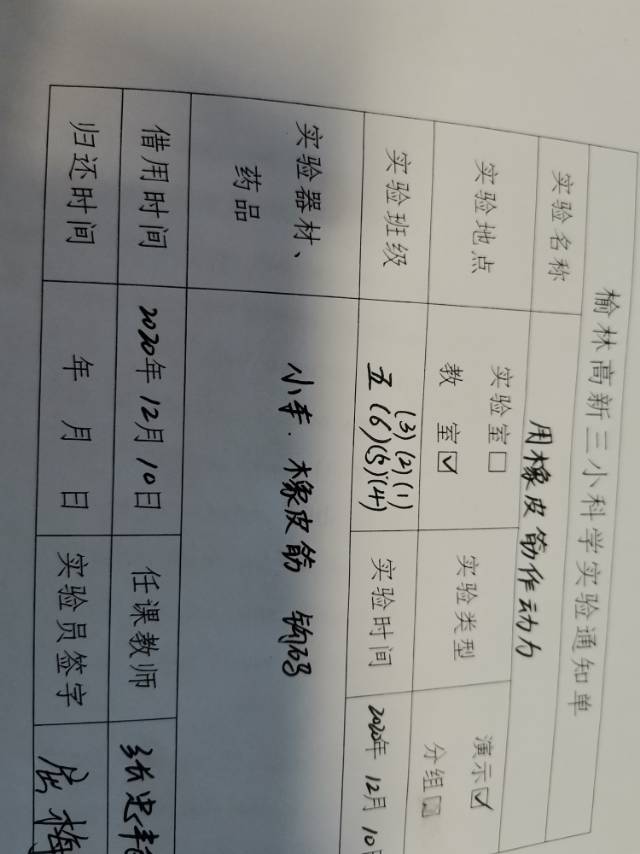 榆林高新三小科学实验通知单
实验名称 用橡皮筋作动力
实验地点 实验室□ 实验类型 演示☑
教 室☑ 分组□
实验班级 (3)(2)(1) 实验时间 2020年12月10
五(6)(5)(4)
实验器材、 小车.橡皮筋 钩码
药品
借用时间 2020年12月10日 任课教师 张忠
归还时间 年 月 日 实验员签字 梅